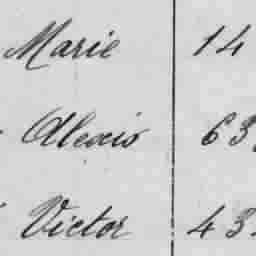 Marie 14
Alexis 63
Victor 43